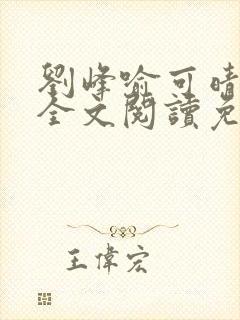 劉峰喻可晴
全文閱讀免
王偉宏